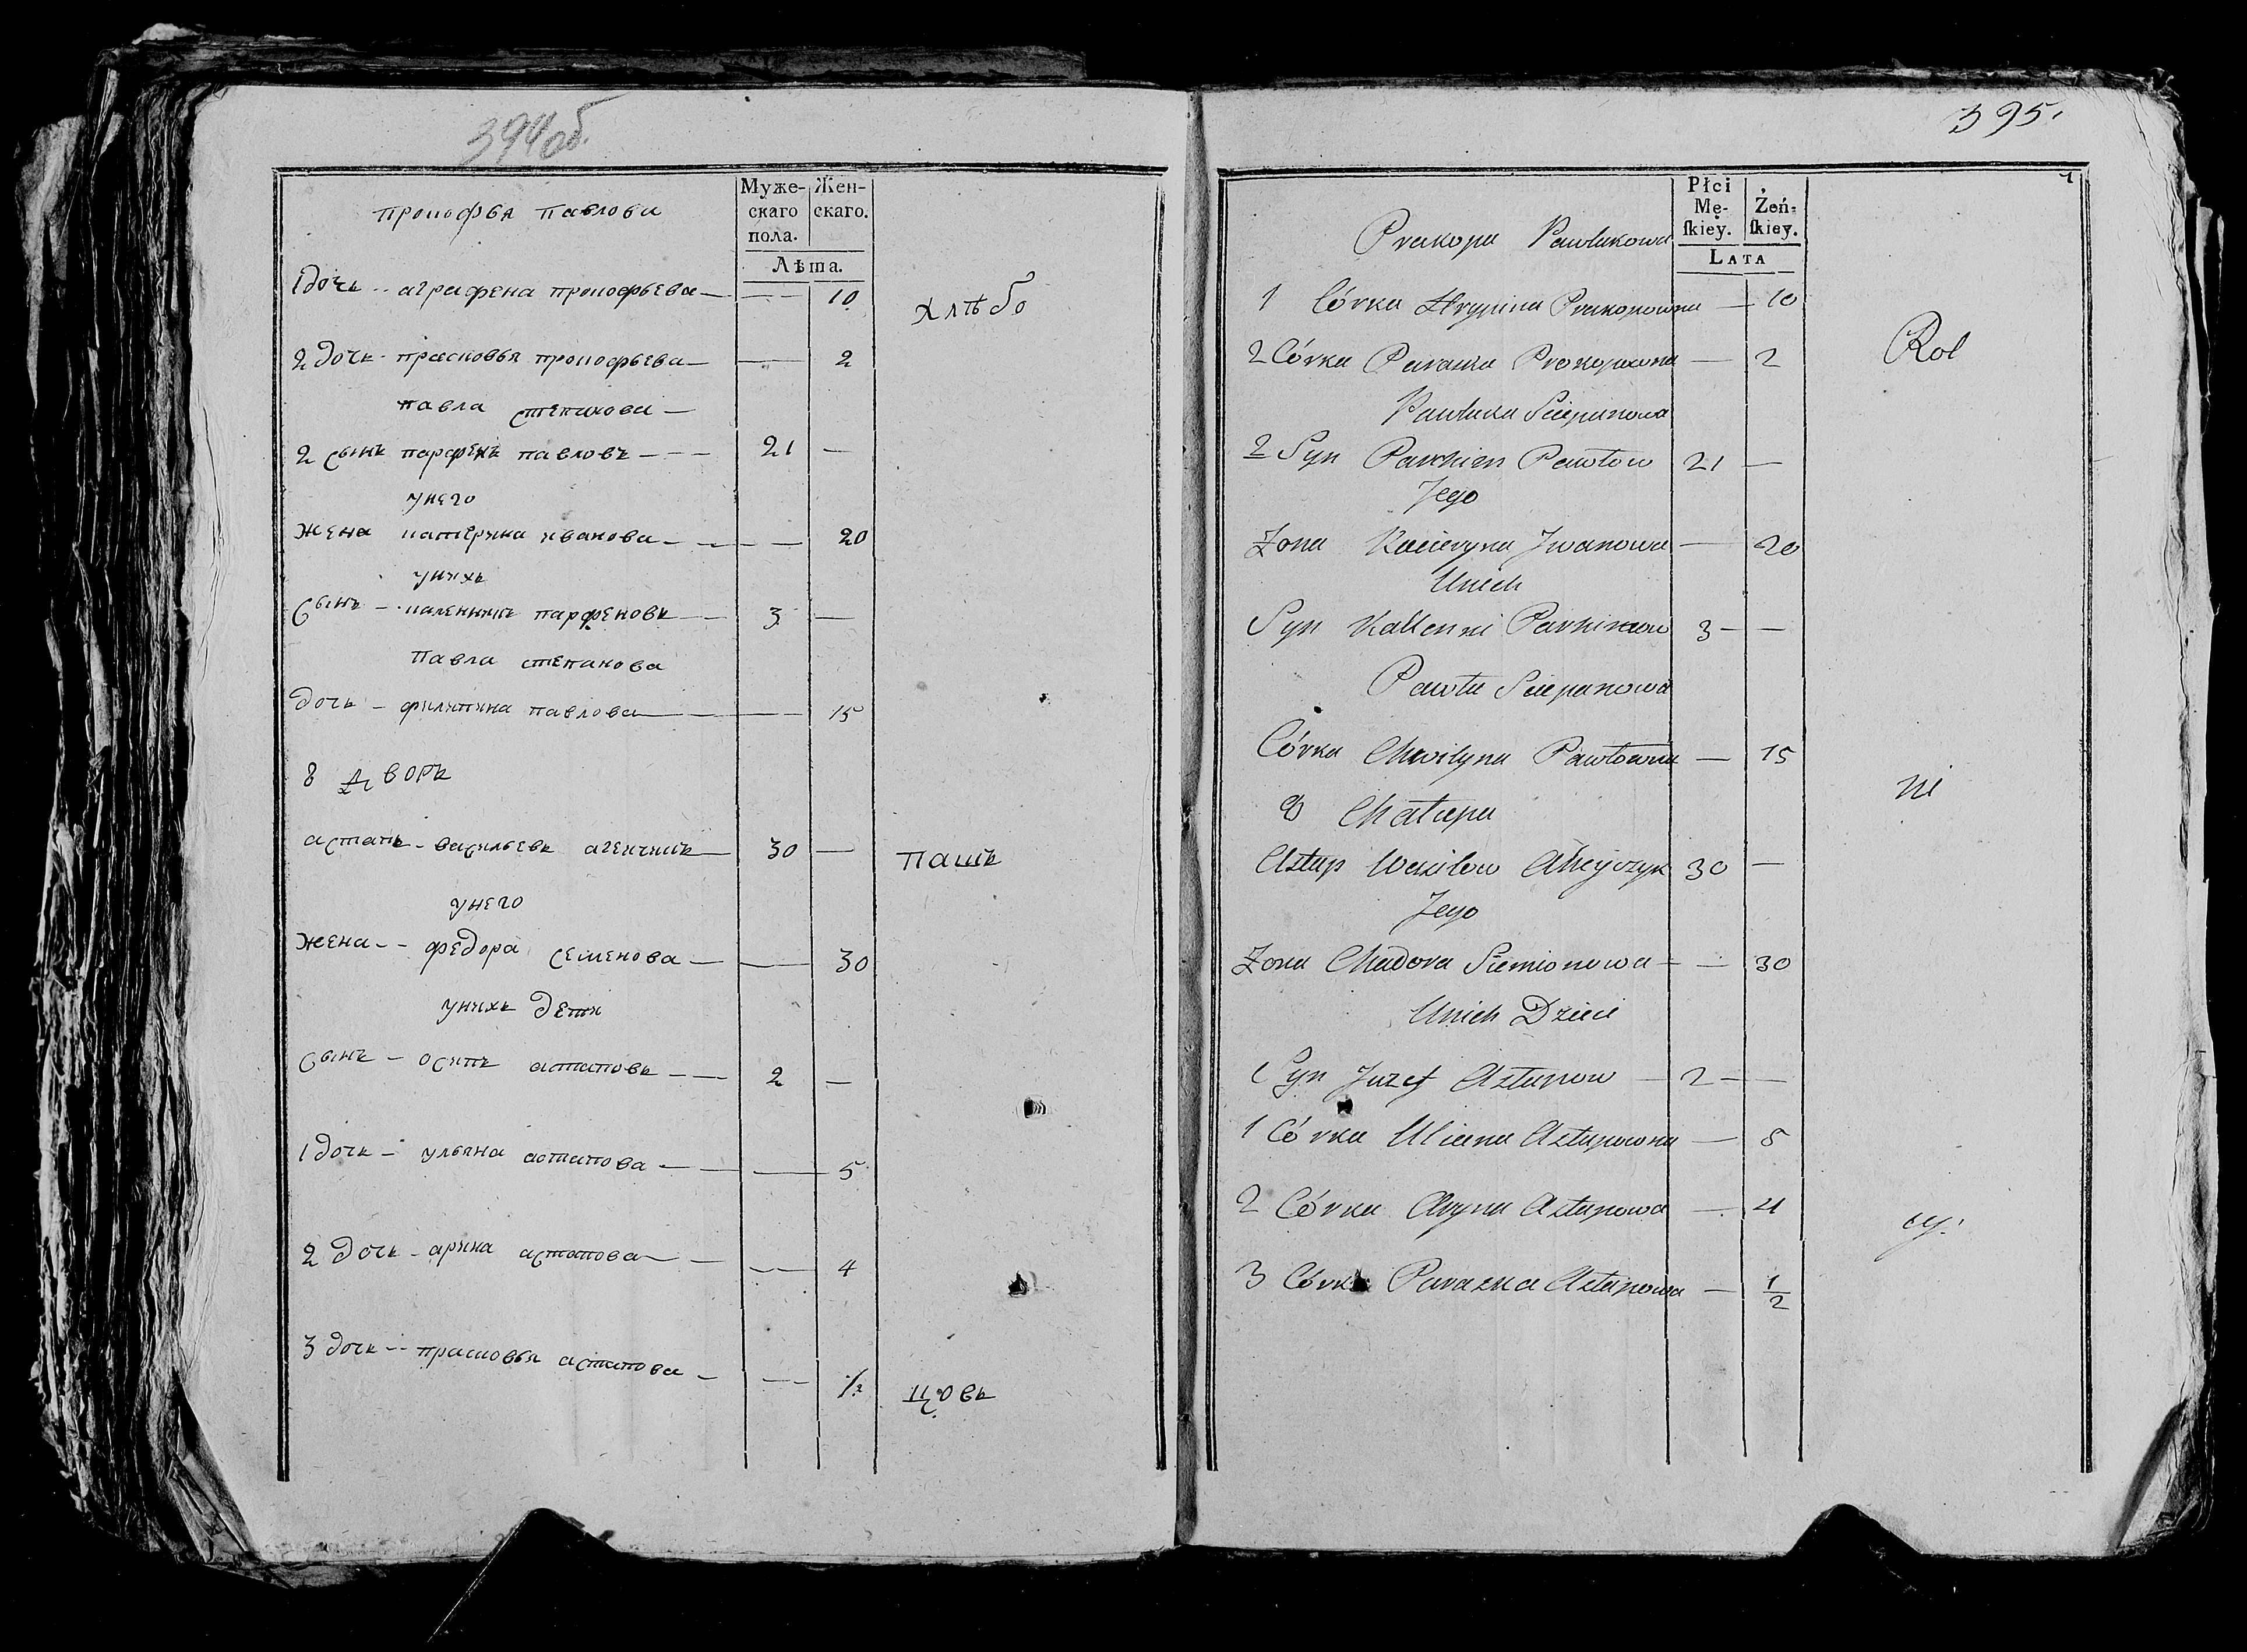 394об.
Муже- Жен-
скаго скаго.
пола.
Лѣта.
прокофья павлова
1 дочь -- аграфена прокофьева — — 10
хлѣбо
2 дочь - прасковья прокофьева — — 2
павла степанова —
2 сынъ парфенъ павловъ - - - 21 —
унего
жена катерина иванова - — — 20
унихъ
сынъ - каленикъ парфеновъ — 3 —
павла степанова
дочь - филипина павлова — — 15
8 дворъ
астапъ - васильевъ агейчикъ — 30 —
пашъ
унего
жена -- федора семенова — — 30
унихъ дети
сынъ - осипъ астаповъ — — 2 —
1 дочь - ульяна астапова — — — 5
2 дочь - арина астапова — — — 4
3 дочь -- прасковья астапова — — 1/2
цовъ
395.
Płci
Mę- Żeń-
skiey. skiey.
LATA
Prakopa Pawlukowa
1 Córka Hrypina Prakopowna — 10
2 Córka Paraska Prokopowna — 2
Rol
Pawluka Sciepanowa
2 Syn Parchien Pawłow 21 —
Jego
Zona Kacieryna Jwanowa — 20
Unich
Syn Kallenni 3 — —
Pawła Sciepanowa
Córka Chwilyna Pawłowna — 15
ni
8 Chałupa
Astap Wasilew 30 —
Jego
Zona Chadora Siemionowa — — 30
Unich Dzieci
1 Syn Juzef Astapow — 2 — —
1 Córka Uliana Astapowna — 5
2 Córka Aryna Astapowa — 4
cy.
3 Córka Paraska Astapowa — 1/2